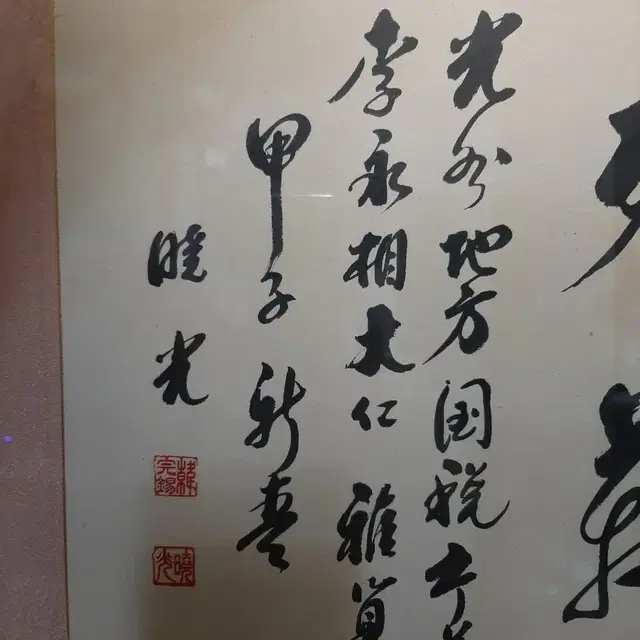 光州地方国税
李永相大仁雅
甲子新春
暁光
韓完錫
曉光